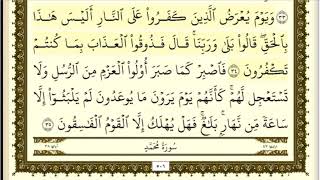 ٣٣ وَيَوْمَ يُعْرَضُ الَّذِينَ كَفَرُوا عَلَى النَّارِ أَلَيْسَ هَٰذَا
بِالْحَقِّ ۖ قَالُوا بَلَىٰ وَرَبِّنَا ۚ قَالَ فَذُوقُوا الْعَذَابَ بِمَا كُنتُمْ
تَكْفُرُونَ ٣٤ فَاصْبِرْ كَمَا صَبَرَ أُولُوا الْعَزْمِ مِنَ الرُّسُلِ وَلَا
تَسْتَعْجِل لَّهُمْ ۚ كَأَنَّهُمْ يَوْمَ يَرَوْنَ مَا يُوعَدُونَ لَمْ يَلْبَثُوا إِلَّا
سَاعَةً مِّن نَّهَارٍ ۚ بَلَاغٌ ۚ فَهَلْ يُهْلَكُ إِلَّا الْقَوْمُ الْفَاسِقُونَ ٣٥
٥٠٦
سُورَةُ مُحَمَّدٍ